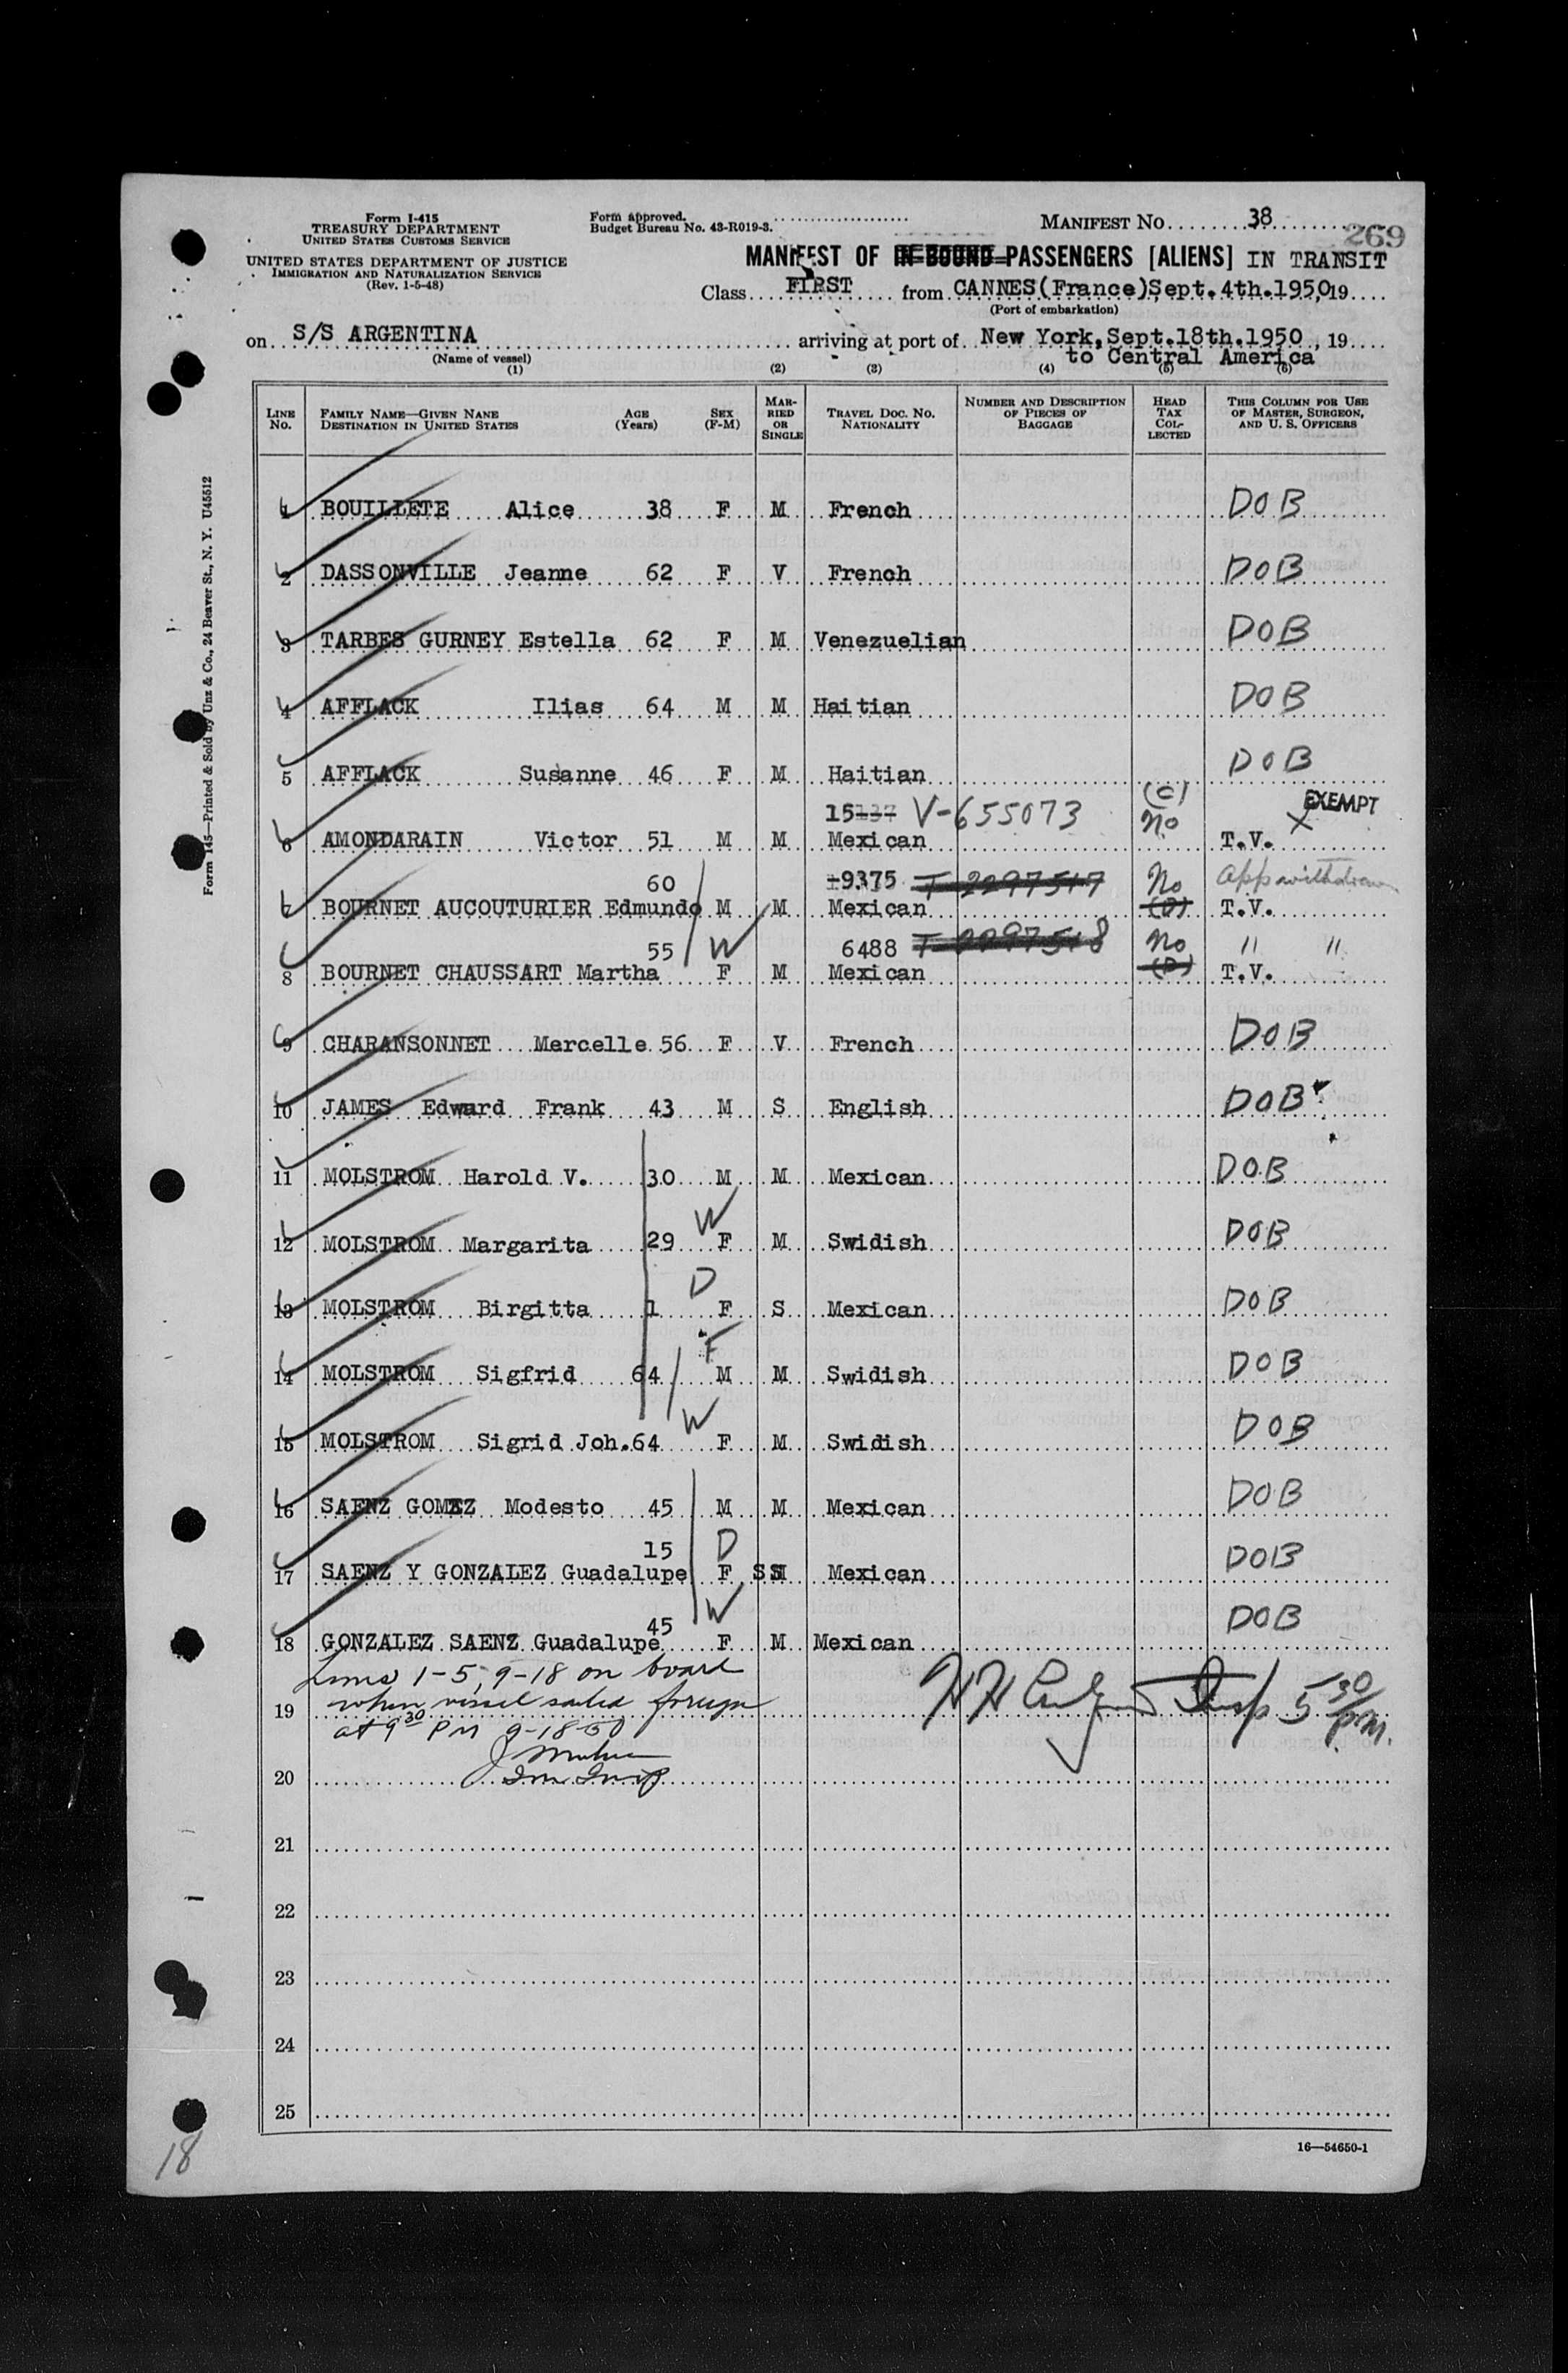 Form I-415
TREASURY DEPARTMENT
UNITED STATES CUSTOMS SERVICE
UNITED STATES DEPARTMENT OF JUSTICE
IMMIGRATION AND NATURALIZATION SERVICE
(Rev. 1-5-48)
Form approved.
Budget Bureau No. 43-R019-3.
MANIFEST NO. 38
269
MANIFEST OF IN-BOUND PASSENGERS [ALIENS] IN TRANSIT
Class FIRST from CANNES(France)Sept.4th.1950, 19
(Port of embarkation)
on S/S ARGENTINA arriving at port of New York,Sept.18th.1950, 19
(Name of vessel) to Central America
(1) (2) (3) (4) (5) (6)
LINE NO. FAMILY NAME—GIVEN NAME DESTINATION IN UNITED STATES AGE (Years) SEX (F-M) MARRIED OR SINGLE TRAVEL DOC. NO. NATIONALITY NUMBER AND DESCRIPTION OF PIECES OF BAGGAGE HEAD TAX COLLECTED THIS COLUMN FOR USE OF MASTER, SURGEON, AND U. S. OFFICERS
1 BOUILLETE Alice 38 F M French DOB
2 DASSONVILLE Jeanne 62 F V French DOB
3 TARBES GURNEY Estella 62 F M Venezuelian DOB
4 AFFLACK Ilias 64 M M Haitian DOB
5 AFFLACK Susanne 46 F M Haitian DOB
15137 V-655073 (C) EXEMPT
6 AMONDARAIN Victor 51 M M Mexican No T.V. X
60 -9375 T-2297517 No App withdrawn
7 BOURNET AUCOUTURIER Edmundo M M Mexican T.V.
55 W 6488 T-2297518 No " "
8 BOURNET CHAUSSART Martha F M Mexican T.V.
9 CHARANSONNET Marcelle 56 F V French DOB
10 JAMES Edward Frank 43 M S English DOB
11 MOLSTROM Harold V. 30 M M Mexican DOB
W
12 MOLSTROM Margarita 29 F M Swidish DOB
D
13 MOLSTROM Birgitta 1 F S Mexican DOB
F
14 MOLSTROM Sigfrid 64 M M Swidish DOB
W
15 MOLSTROM Sigrid Joh. 64 F M Swidish DOB
16 SAENZ GOMEZ Modesto 45 M M Mexican DOB
15 D
17 SAENZ Y GONZALEZ Guadalupe F S Mexican DOB
45 W
18 GONZALEZ SAENZ Guadalupe F M Mexican DOB
Lines 1-5, 9-18 on board
19 when vessel sailed foreign
at 9 30 PM 9-18-50
Insp 5 30 P.M.
20 Imm Insp
21
22
23
24
25
16—54650-1
18
Form 145—Printed & Sold by Unz & Co., 24 Beaver St., N. Y. U45512